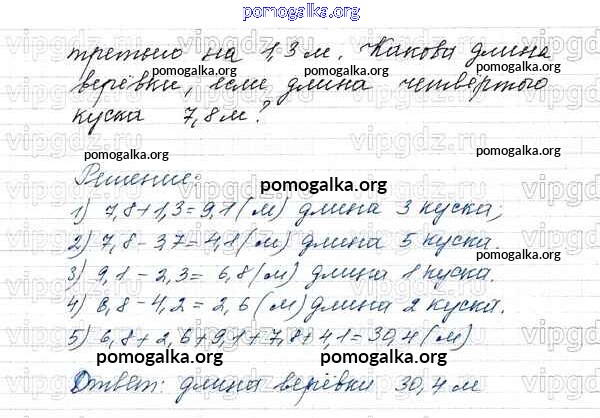 pomogalka.org
третьего на 1,3 м. Какова длина
верёвки, если длина четвёртого
куска 7,8 м?
Решение:
1) 7,8+1,3=9,1 (м) длина 3 куска;
2) 7,8-3,7=4,1 (м) длина 5 куска.
3) 9,1-2,3=6,8 (м) длина 1 куска.
4) 6,8-4,2=2,6 (м) длина 2 куска.
5) 6,8+2,6+9,1+7,8+4,1=30,4 (м)
Ответ: длина верёвки 30,4 м